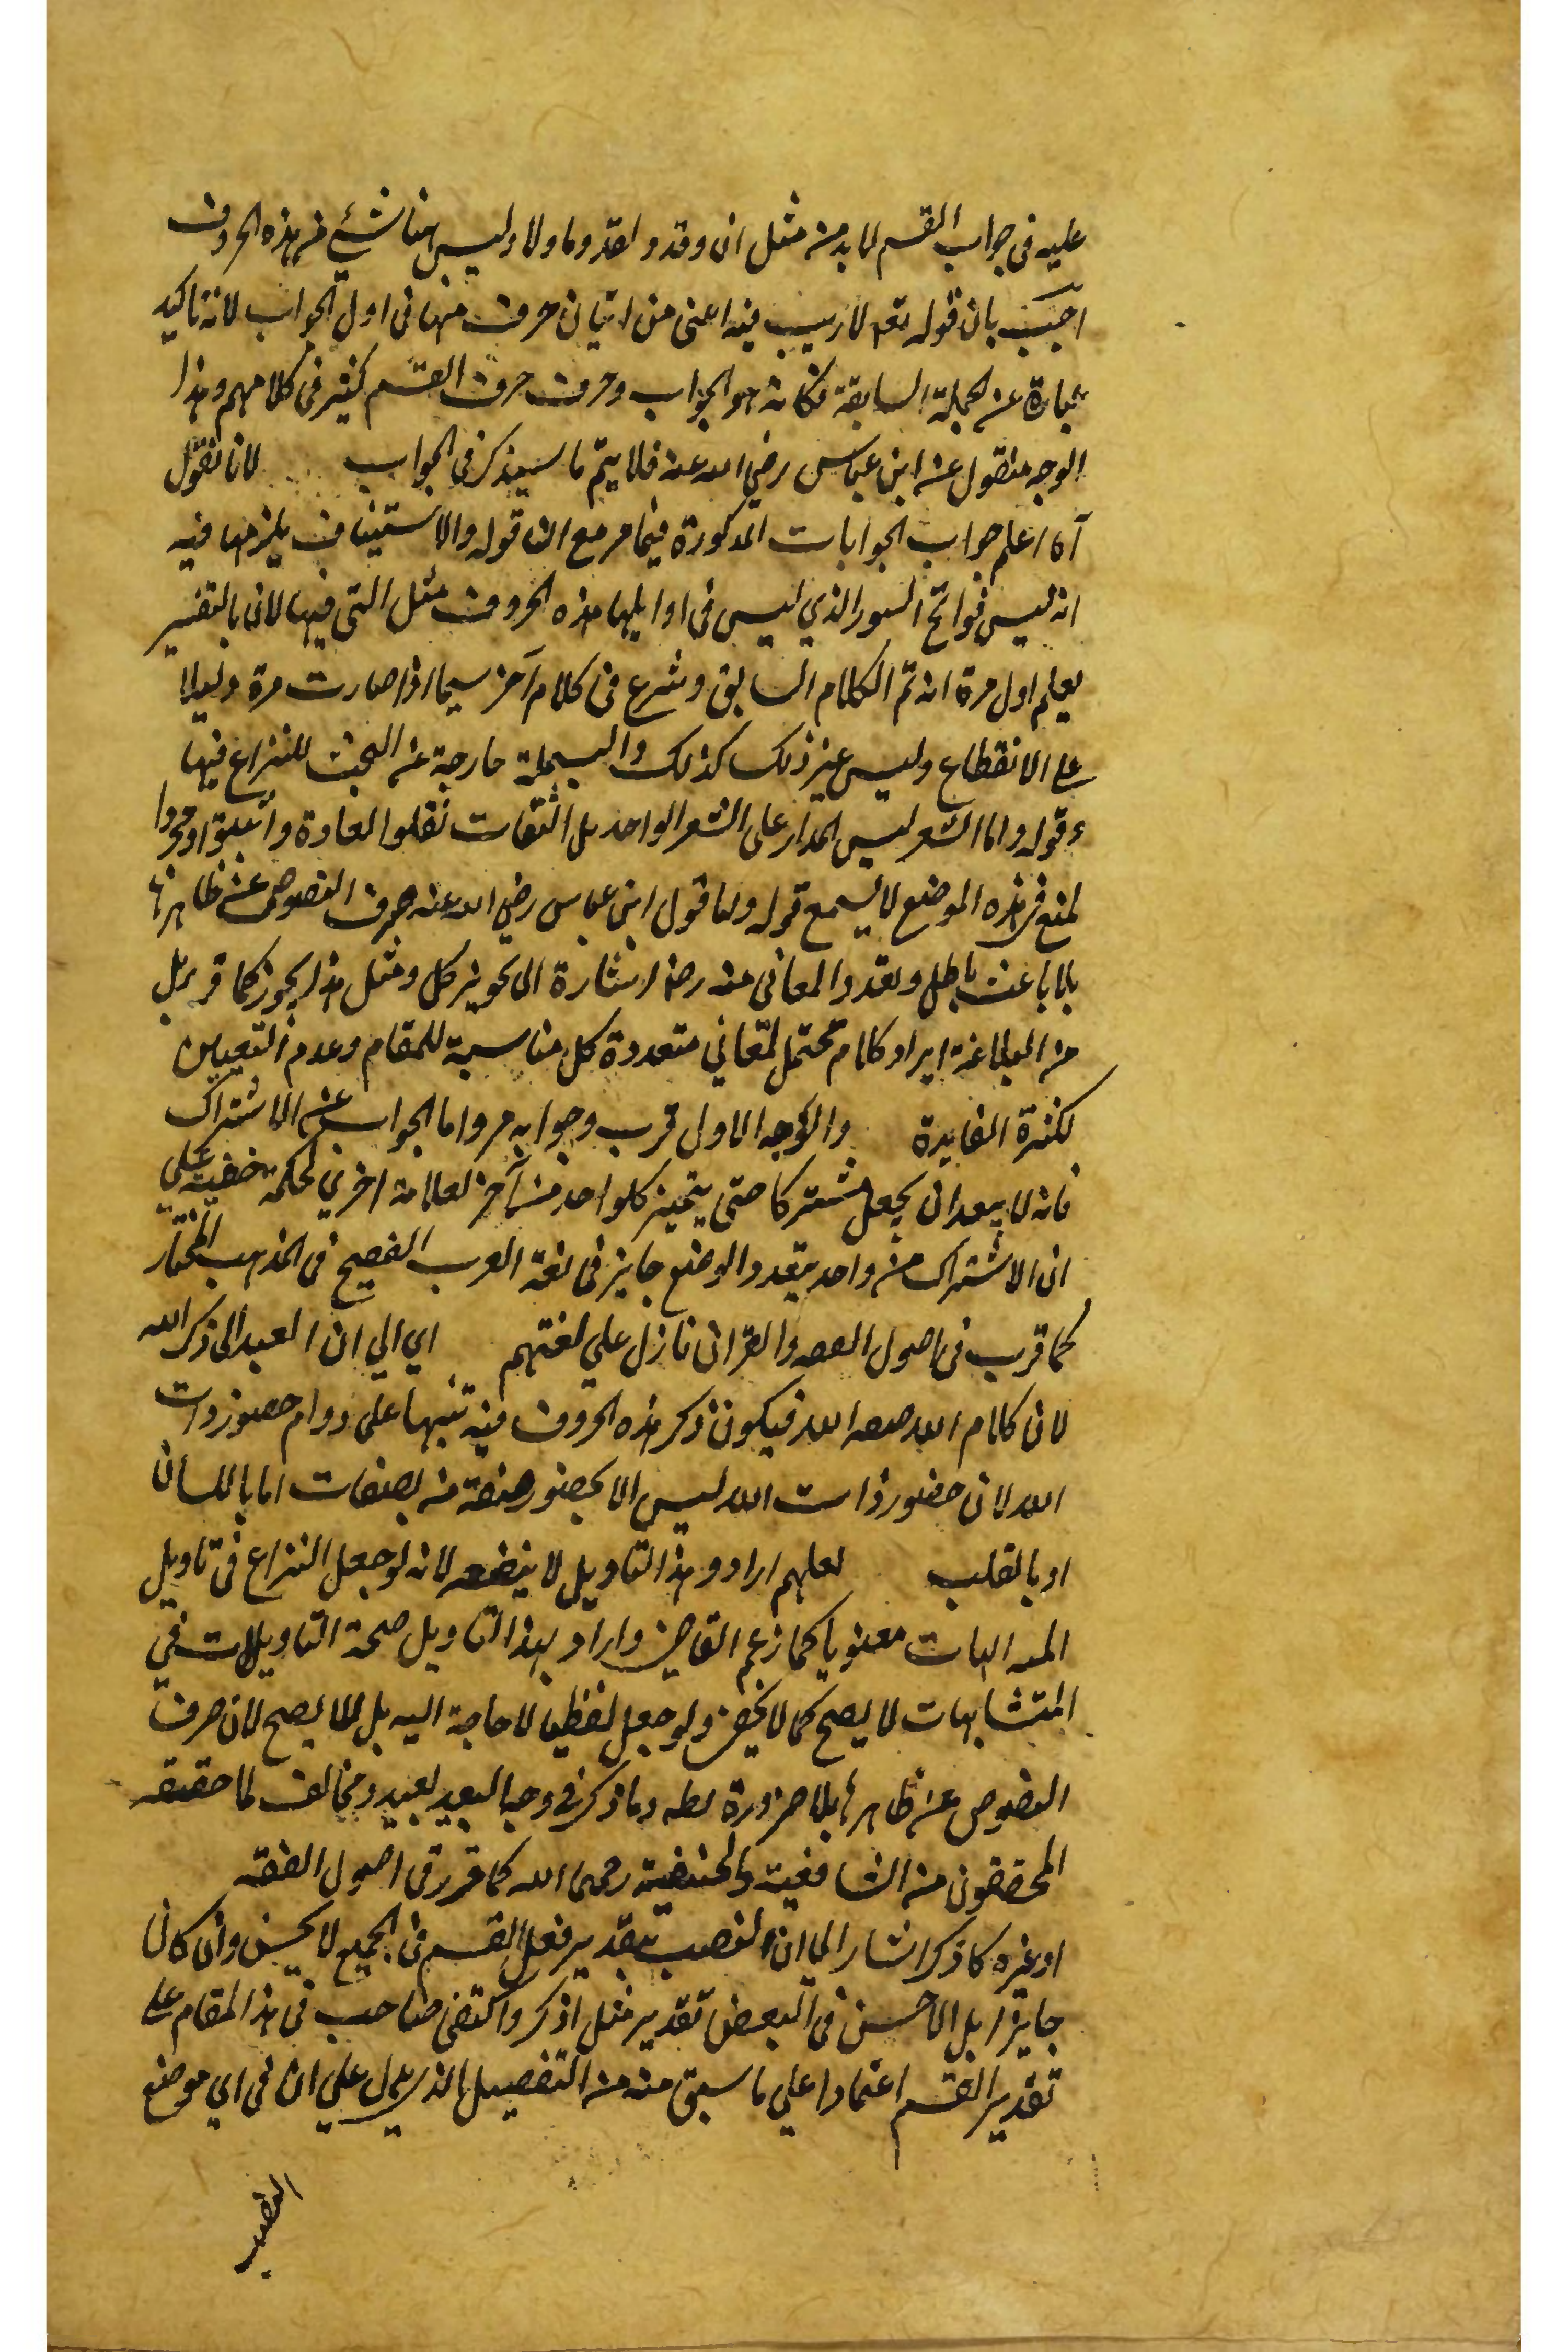 عليه فى جواب القسم لا بد من مثل ان وقد و لقد وما ولا وليس هنا شئ من هذه الحروف
اجيب بان قوله تعه لا ريب فيه اغنى من اتيان حرف منها فى اول الجواب لانه تاكيد
عبارة عن الجملة السابقة فكانه هو الجواب وحرف القسم كثير فى كلامهم وهذا
الوجه منقول عن ابن عباس رضي الله عنه فلا يتم ما سيذكر فى الجواب لانا نقول
آه اعلم جواب الجوابات المذكورة فيما مر مع ان قوله والاستيناف يلزمها فيه
انه ليس فواتح السور الذي ليس فى اوايلها هذه الحروف مثل التى فيها لان بالتفسير
يعلم اول مرة انه تم الكلام السابق وشرع فى كلام آخر سيما اذا صارت مرة دليلا
على الانقطاع وليس غير ذلك كذلك والبسملة خارجة عن البحث للنزاع فيها
قوله واما الشعر ليس المدار على الشعر الواحد بل الثقات نقلوا العادة و
لمنع فى هذه الموضع لا يسمع قوله ولنا قول ابن عباس رضي الله عنه صرف النصوص عن ظاهرها
بلا باعث باطل وتعدد المعانى منه رضه اشارة الى تجويز كل ومثل هذا يجوز كما قرر بل
من البلاغة ايراد كلام محتمل لمعاني متعددة كل مناسبة للمقام وعدم التعيين
لكثرة الفايدة والوجه الاول قرب وجوابه مر واما الجواب عن الاشتراك
فانه لا يبعد ان يجعل مشتركا حتى يتميز كلواحد من آخر لعلامة اخري لحكمة خفية على
ان الاشتراك من واحد بتعدد الوضع جايز فى لغة العرب الفصيح فى المذهب المختار
كما قرب فى اصول الفقه والقران نازل علي لغتهم اي الي ان العبد الى ذكر الله
لان كلام الله صفة الله فيكون ذكر هذه الحروف فيه تنبيها على دوام حضور ذات
الله لان حضور ذات الله ليس الا بحضور صفة من بصفات اما باللسان
او بالقلب لعلهم ارادو هذا التاويل لا ينفعه لانه لو جعل النزاع فى تاويل
المتشابهات معنويا كما زعم القاضي واراد بهذا التاويل صحة التاويلات في
المتشابهات لا يصح كما لا يخفى ولو جعل لفظيا لا حاجة اليه بل لا يصح لان صرف
النصوص عن ظاهرها بلا ضرورة بطه وما ذكر فى وجه البعيد لبعيد ومخالف لما حققه
المحققون من الشافعية والحنفية رحمهم الله كما قرر فى اصول الفقه
او غيره كما ذكر اشار الى ان النصب بتقدير فعل القسم فى الجميع لا يحسن وان كان
جايزا بل الاحسن فى البعض تقدير مثل اذكر واكتفى صاحب فى هذا المقام على
تقدير القسم اعتمادا علي ما سبق منه من التفصيل الذي يدل علي ان فى اي موضع
النصب